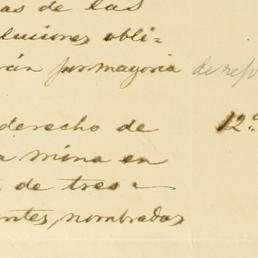 as de las
luciones obli-
rán por mayoria de rep
derecho de 12.º
a mina en
de tres
entes, nombradas